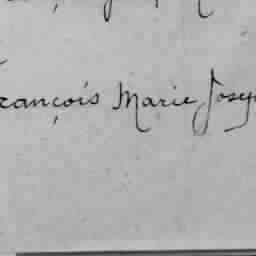 François Marie Josep